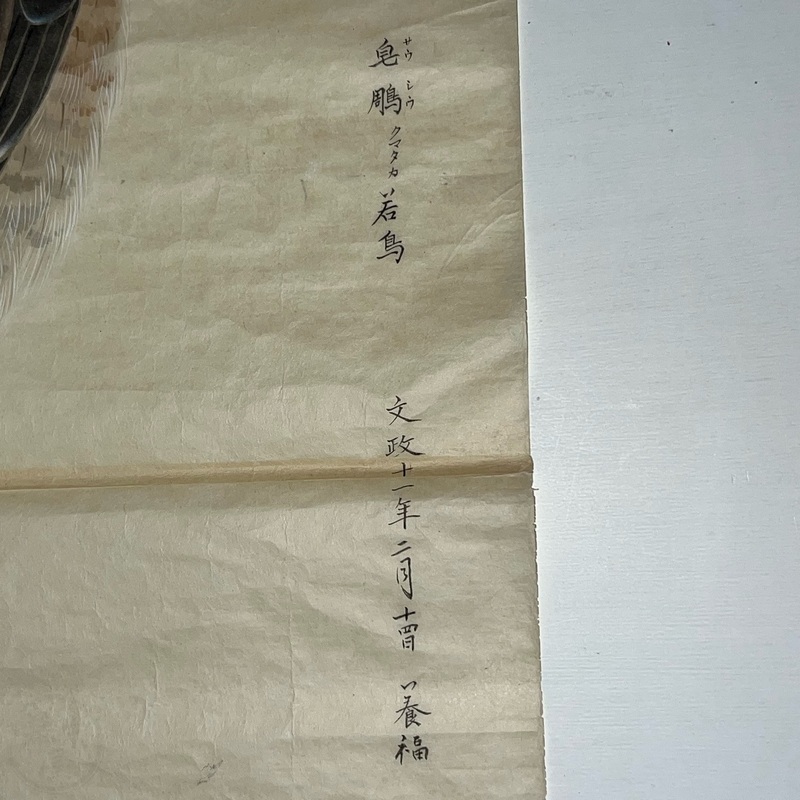 皂鵰クマタカ若鳥
サウシウ
文政十一年二月十四日 養福